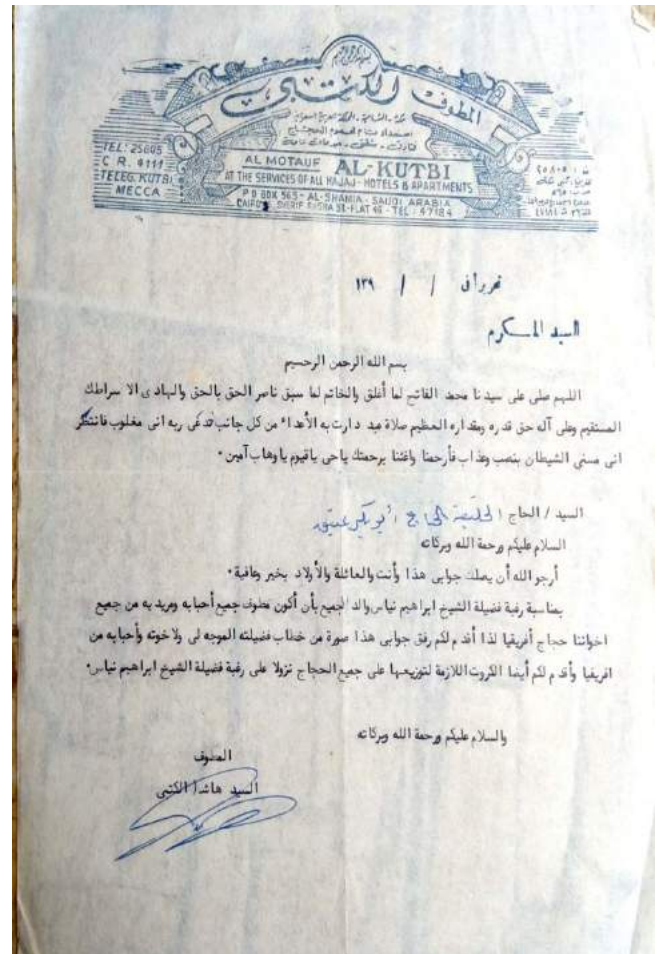 المطوف الكتبي
TEL: 25805
C R. 4111
TELEG. KUTBI
MECCA
AL MOTAUF AL-KUTBI
AT THE SERVICES OF ALL HAJAJ - HOTELS & APARTMENTS
P O BOX 565 - AL-SHAMIA - SAUDI ARABIA
CAIRO SHERIF PASHA ST-FLAT 46 - TEL : 47184
تحريرا في / / ١٣٩
السيد المكرم
بسم الله الرحمن الرحيم
اللهم صلى على سيدنا محمد الفاتح لما أغلق والخاتم لما سبق ناصر الحق بالحق والهادى الا سراطك
المستقيم وعلى آله حق قدره ومقداره العظيم صلاة عبد دارت به الأعداء من كل جانب فدعى ربه انى مغلوب فانتصر
انى مسنى الشيطان بنصب وعذاب فأرحمنا واغثنا برحمتك ياحى ياقيوم ياوهاب آمين٠
السيد / الحاج الخليفة الحاج أبو بكر عتيق
السلام عليكم ورحمة الله وبركاته
أرجو الله أن يصلك جوابى هذا وأنت والعائلة والأولاد بخير وعافية٠
بمناسبة رغبة فضيلة الشيخ ابراهيم نياس والد الجميع بأن أكون مطوف جميع أحبابه ومريديه من جميع
اخواننا حجاج أفريقيا لذا أقدم لكم رفق جوابى هذا صورة من خطاب فضيلته الموجه لى ولاخوته وأحبابه من
افريقيا وأقدم لكم أيضا الكروت اللازمة لتوزيعها على جميع الحجاج نزولا على رغبة فضيلة الشيخ ابراهيم نياس٠
والسلام عليكم ورحمة الله وبركاته
المطوف
السيد هاشم الكتبى